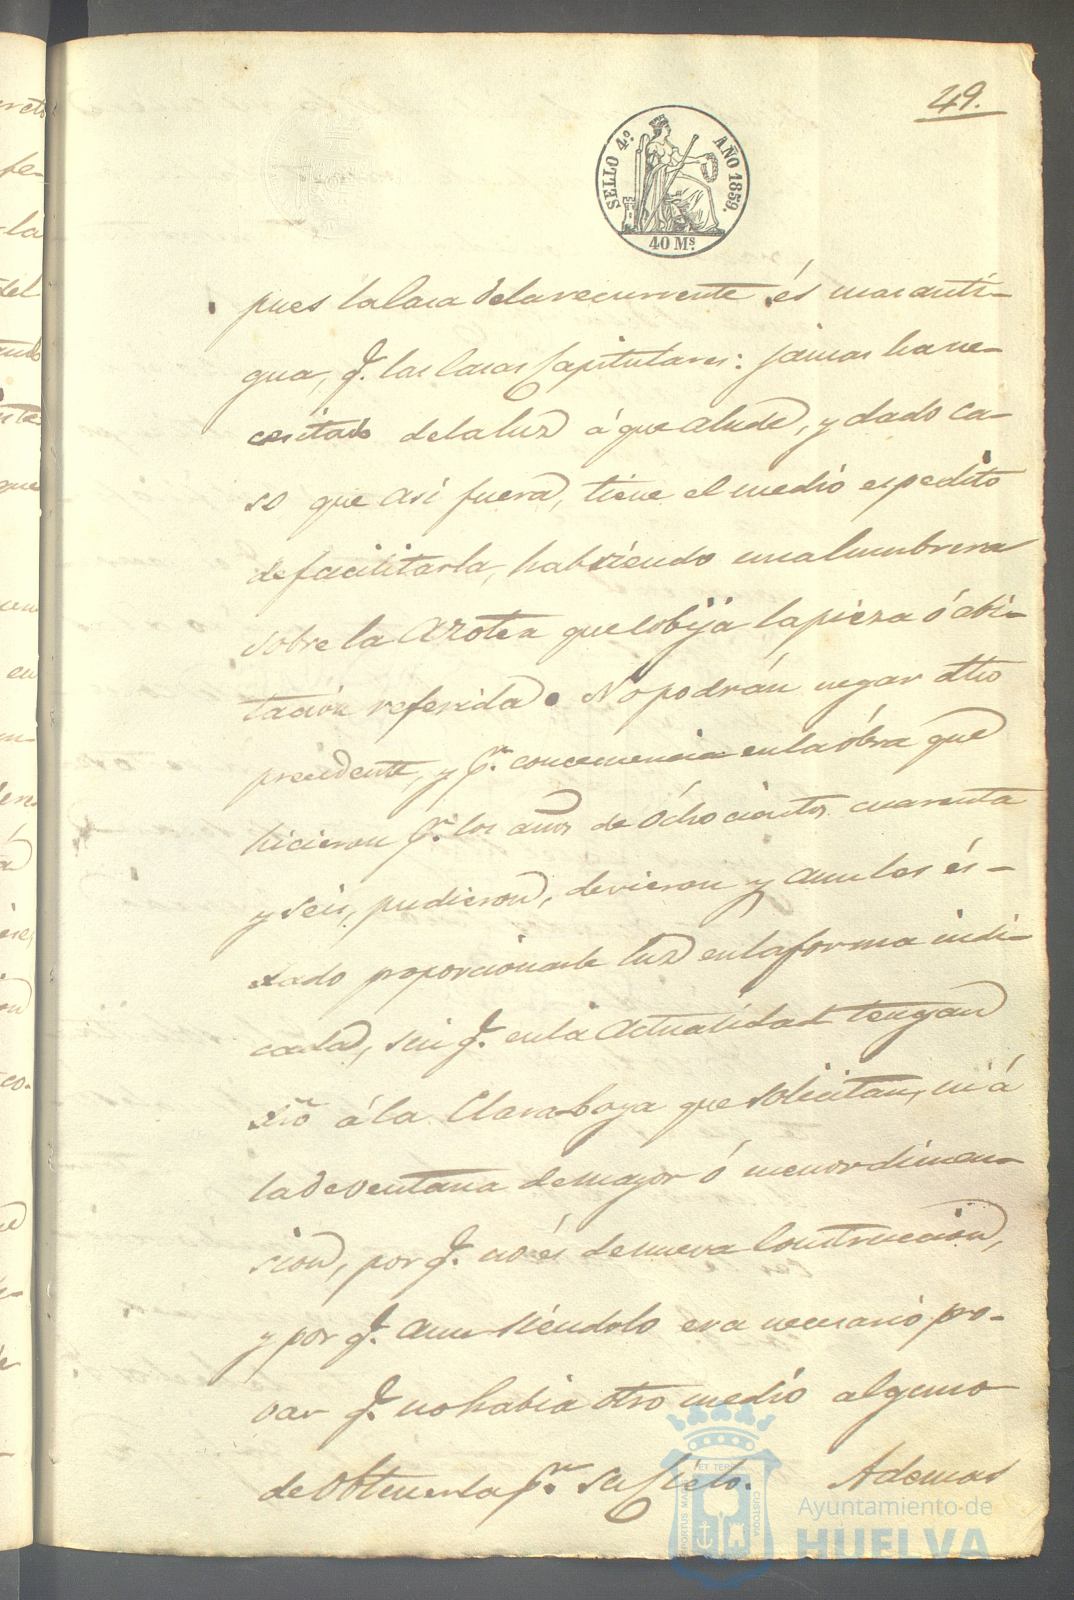 49.
SELLO 4º. AÑO 1859.
40 Ms.
pues la Casa de la recurrente és mas antí-
gua, q. las Casas Capitulares: jamas ha ne-
cesitado de la luz á que alude, y dado ca-
so que así fuera, tiene el medio espedito
de facilitarla, habriendo una lumbrera
sobre la Azotea que cobija la pieza ó abi-
tación referida. No podrán negar dho
precedente, y pr. concecuencia en la óbra que
hicieron pr. los años de Ochocientos cuarenta
y seis, pudieron, devieron y aun les és-
dado proporcionarle luz en la forma indi-
cada, sin q. en la Actualidad tengan
dro á la Claraboya que solicitan, ni á
la de ventana de mayor ó menor dimen-
sion, por q. no és de nueva Construccion,
y por q. aun siéndolo era necesario pro-
var q. no habia otro medio alguno
de Obtenerla pr. su Cielo. Ademas
Ayuntamiento de
HUELVA